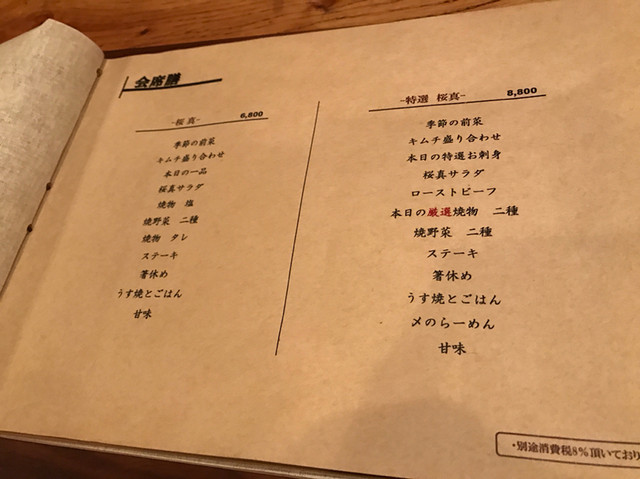 会席膳
-桜真- 6,800
季節の前菜
キムチ盛り合わせ
本日の一品
桜真サラダ
焼物 塩
焼野菜 二種
焼物 タレ
ステーキ
箸休め
うす焼とごはん
甘味
-特選 桜真- 8,800
季節の前菜
キムチ盛り合わせ
本日の特選お刺身
桜真サラダ
ローストビーフ
本日の厳選焼物 二種
焼野菜 二種
ステーキ
箸休め
うす焼とごはん
〆のらーめん
甘味
・別途消費税8%頂いており